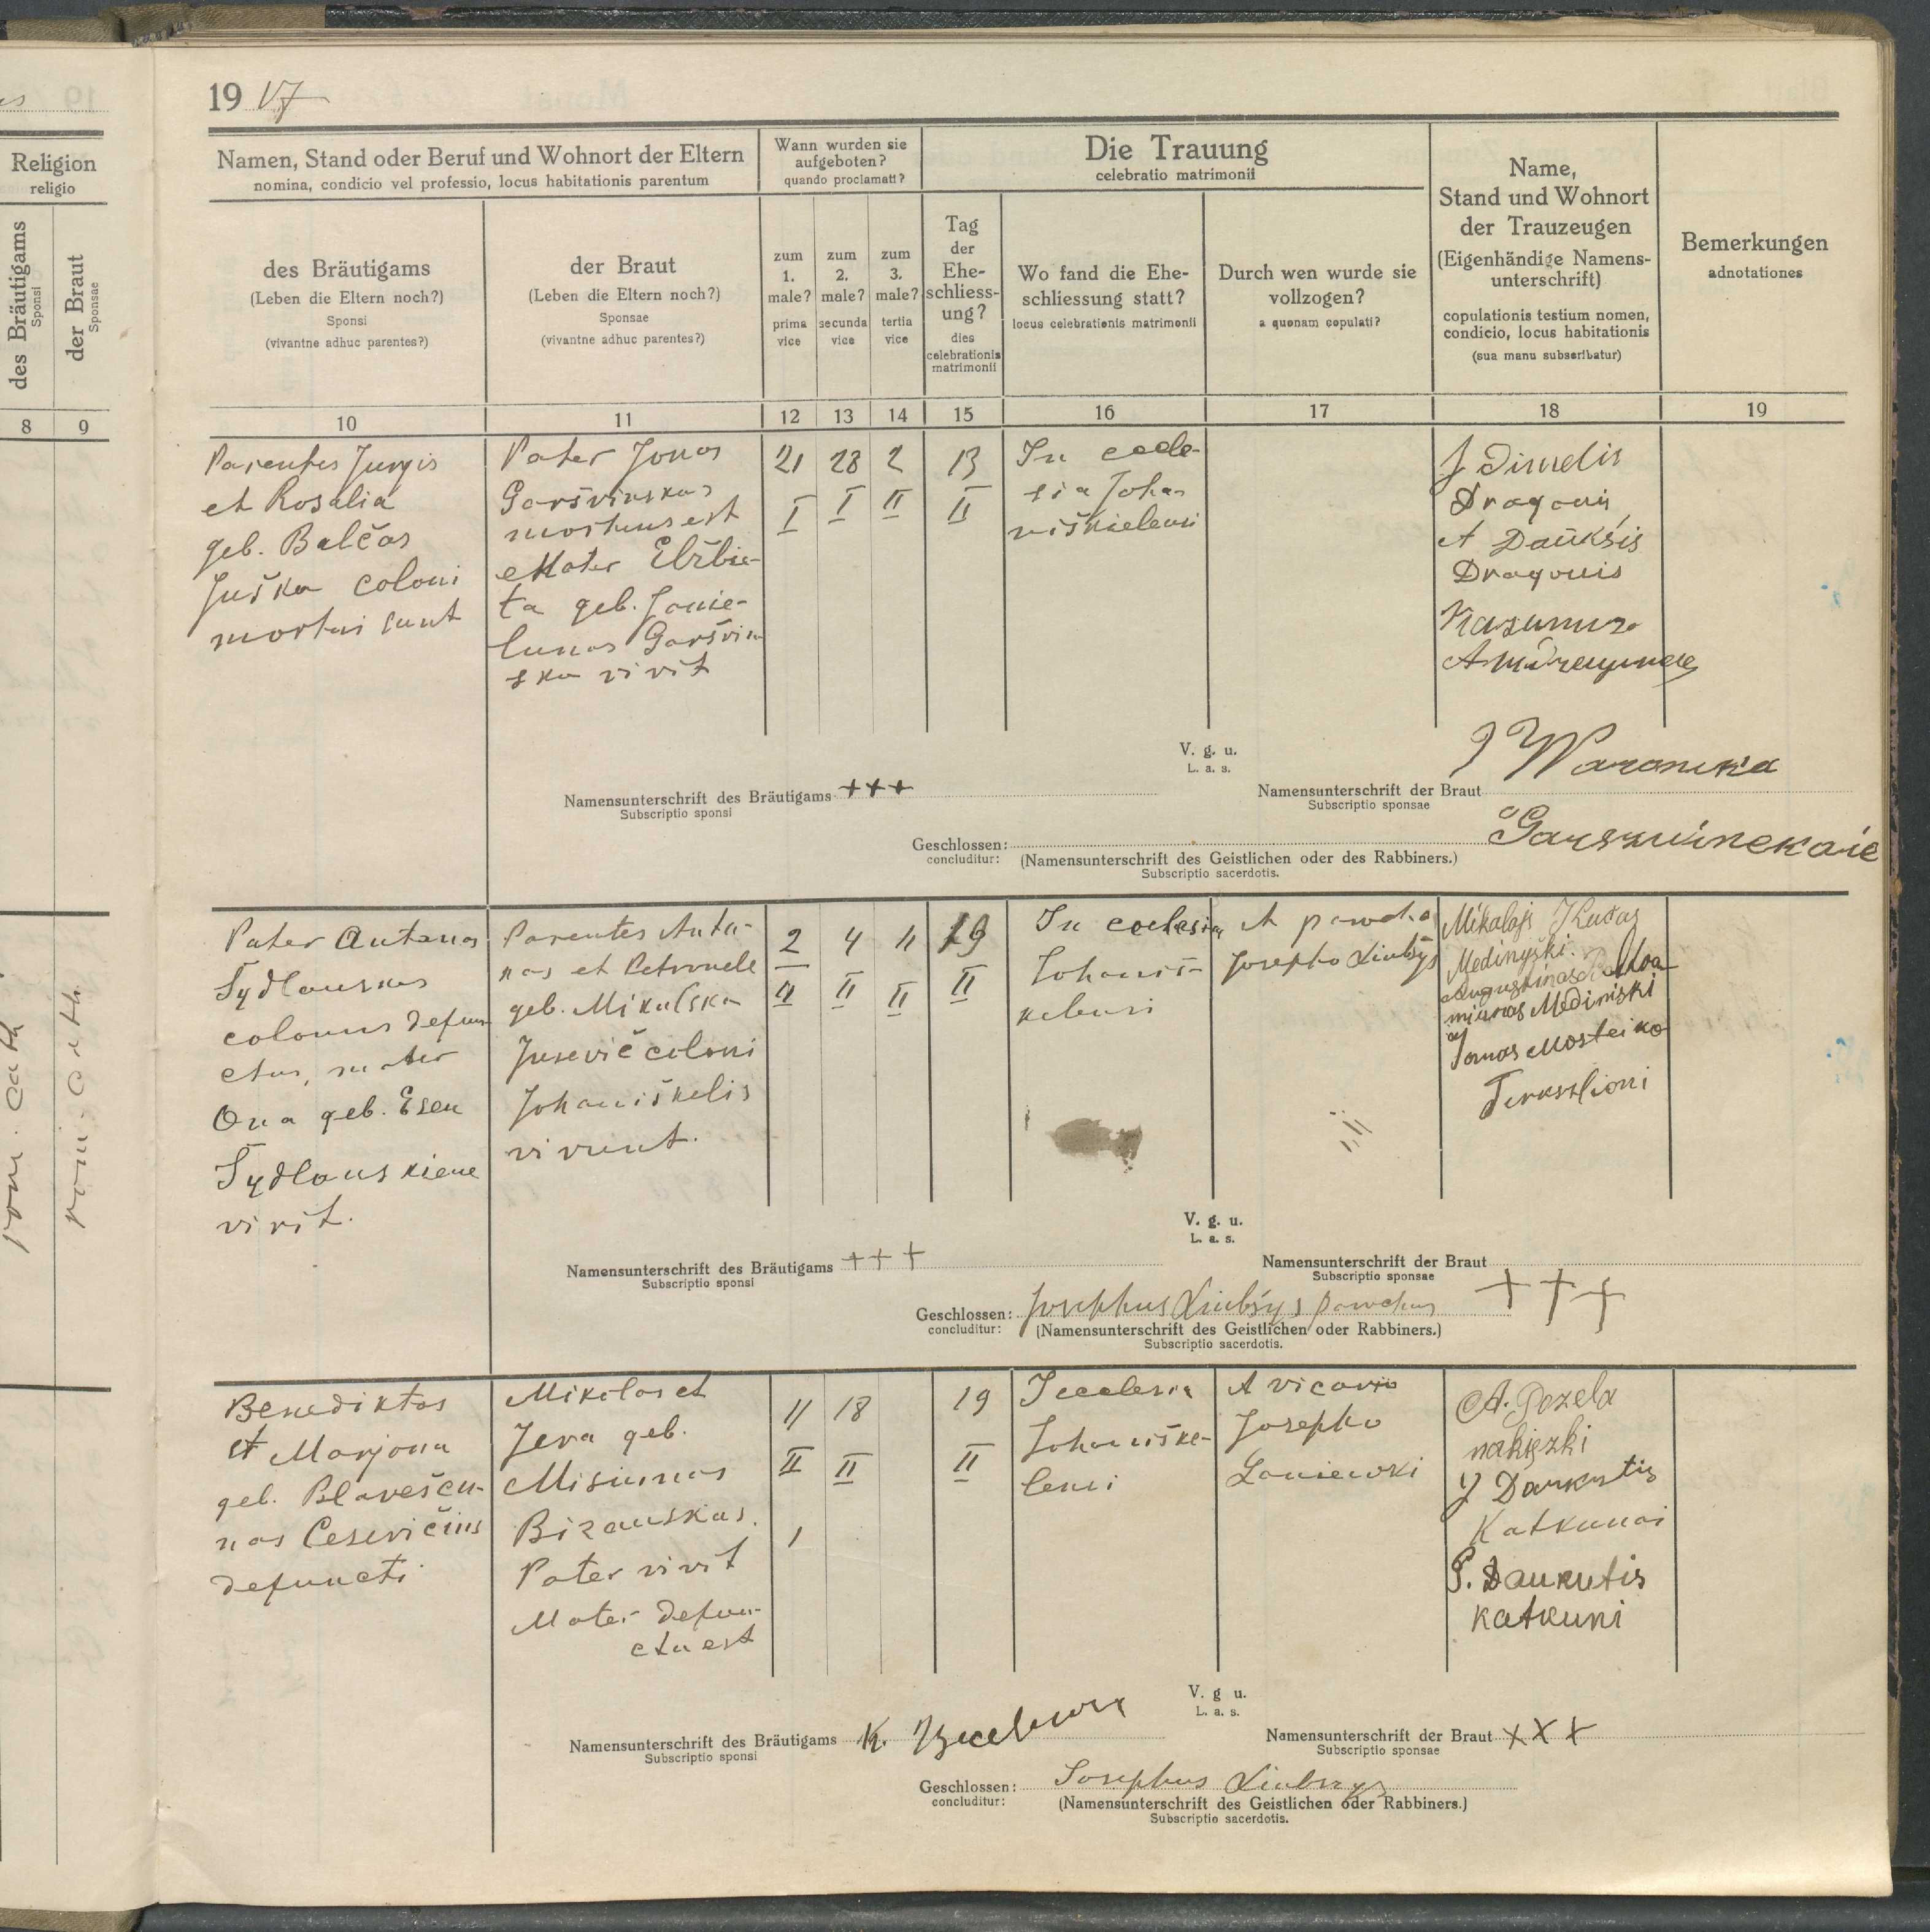 19 17
Religion
religio
des Bräutigams
Sponsi
der Braut
Sponsae
8
9
rom. cath
rom. cath.
Namen, Stand oder Beruf und Wohnort der Eltern
nomina, condicio vel professio, locus habitationis parentum
Wann wurden sie
aufgeboten?
quando proclamati?
Die Trauung
celebratio matrimonii
Name,
Stand und Wohnort
der Trauzeugen
(Eigenhändige Namens-
unterschrift)
copulationis testium nomen,
condicio, locus habitationis
(sua manu subscribatur)
Bemerkungen
adnotationes
des Bräutigams
(Leben die Eltern noch?)
Sponsi
(vivantne adhuc parentes?)
der Braut
(Leben die Eltern noch?)
Sponsae
(vivantne adhuc parentes?)
zum
1.
male?
prima
vice
zum
2.
male?
secunda
vice
zum
3.
male?
tertia
vice
Tag
der
Ehe-
schliess-
ung?
dies
celebrationis
matrimonii
Wo fand die Ehe-
schliessung statt?
locus celebrationis matrimonii
Durch wen wurde sie
vollzogen?
a quonam copulati?
10
11
12
13
14
15
16
17
18
19
Parentes Jurgis
et Rosalia
geb. Balčas
Juška coloni
mortui sunt
Pater Jonas
Garšvinskas
mortuus est
Mater Elžbie-
ta geb. Jonie-
lunas Garšvin
ska vivit
21
I
28
I
2
II
13
II
In eccle-
sia Joha-
niškielensi
J Dimdlis
Dragonis
A Daukšis
Dragonis
V. g. u.
L. a. s.
Namensunterschrift des Bräutigams +++
Subscriptio sponsi
Namensunterschrift der Braut
Subscriptio sponsae
Geschlossen:
concluditur:
(Namensunterschrift des Geistlichen oder des Rabbiners.)
Subscriptio sacerdotis.
Pater Antanas
Šydlauskas
colonus defun-
ctus, mater
Ona geb. Esen
Šydlauskiene
vivit.
Parentes Anta-
nas et Petronele
geb. Mikulska
Jusevič coloni
Johaniškelis
vivunt.
2
II
4
II
11
II
19
II
In ecclesia
Johaniš-
kelensi
A parocho
Josepho Liubšys
Mikalojs Kudas
Medinyški.
Mediniski
Jonas Mosteiko
V. g. u.
L. a. s.
Namensunterschrift des Bräutigams +++
Subscriptio sponsi
Namensunterschrift der Braut
Subscriptio sponsae
+++
Geschlossen: Josephus Liubšys parochus
concluditur:
(Namensunterschrift des Geistlichen oder Rabbiners.)
Subscriptio sacerdotis.
Benediktas
et Marjona
geb. Blavešču-
nas Cesevičius
defuncti
Mikolas et
Jeva geb.
Misiunas
Bizauskas.
Pater vivit
Mater defun-
cta est
11
II
18
II
19
II
I ecclesia
Johaniške-
lensi
A vicario
Josepho
Laniewski
A. Gezela
J Daukutis
Katkunai
P. Daukutis
Katkuni
V. g u.
L. a. s.
Namensunterschrift des Bräutigams K.
Subscriptio sponsi
Namensunterschrift der Braut XXX
Subscriptio sponsae
Geschlossen: Josephus Liubszys
concluditur:
(Namensunterschrift des Geistlichen oder Rabbiners.)
Subscriptio sacerdotis.